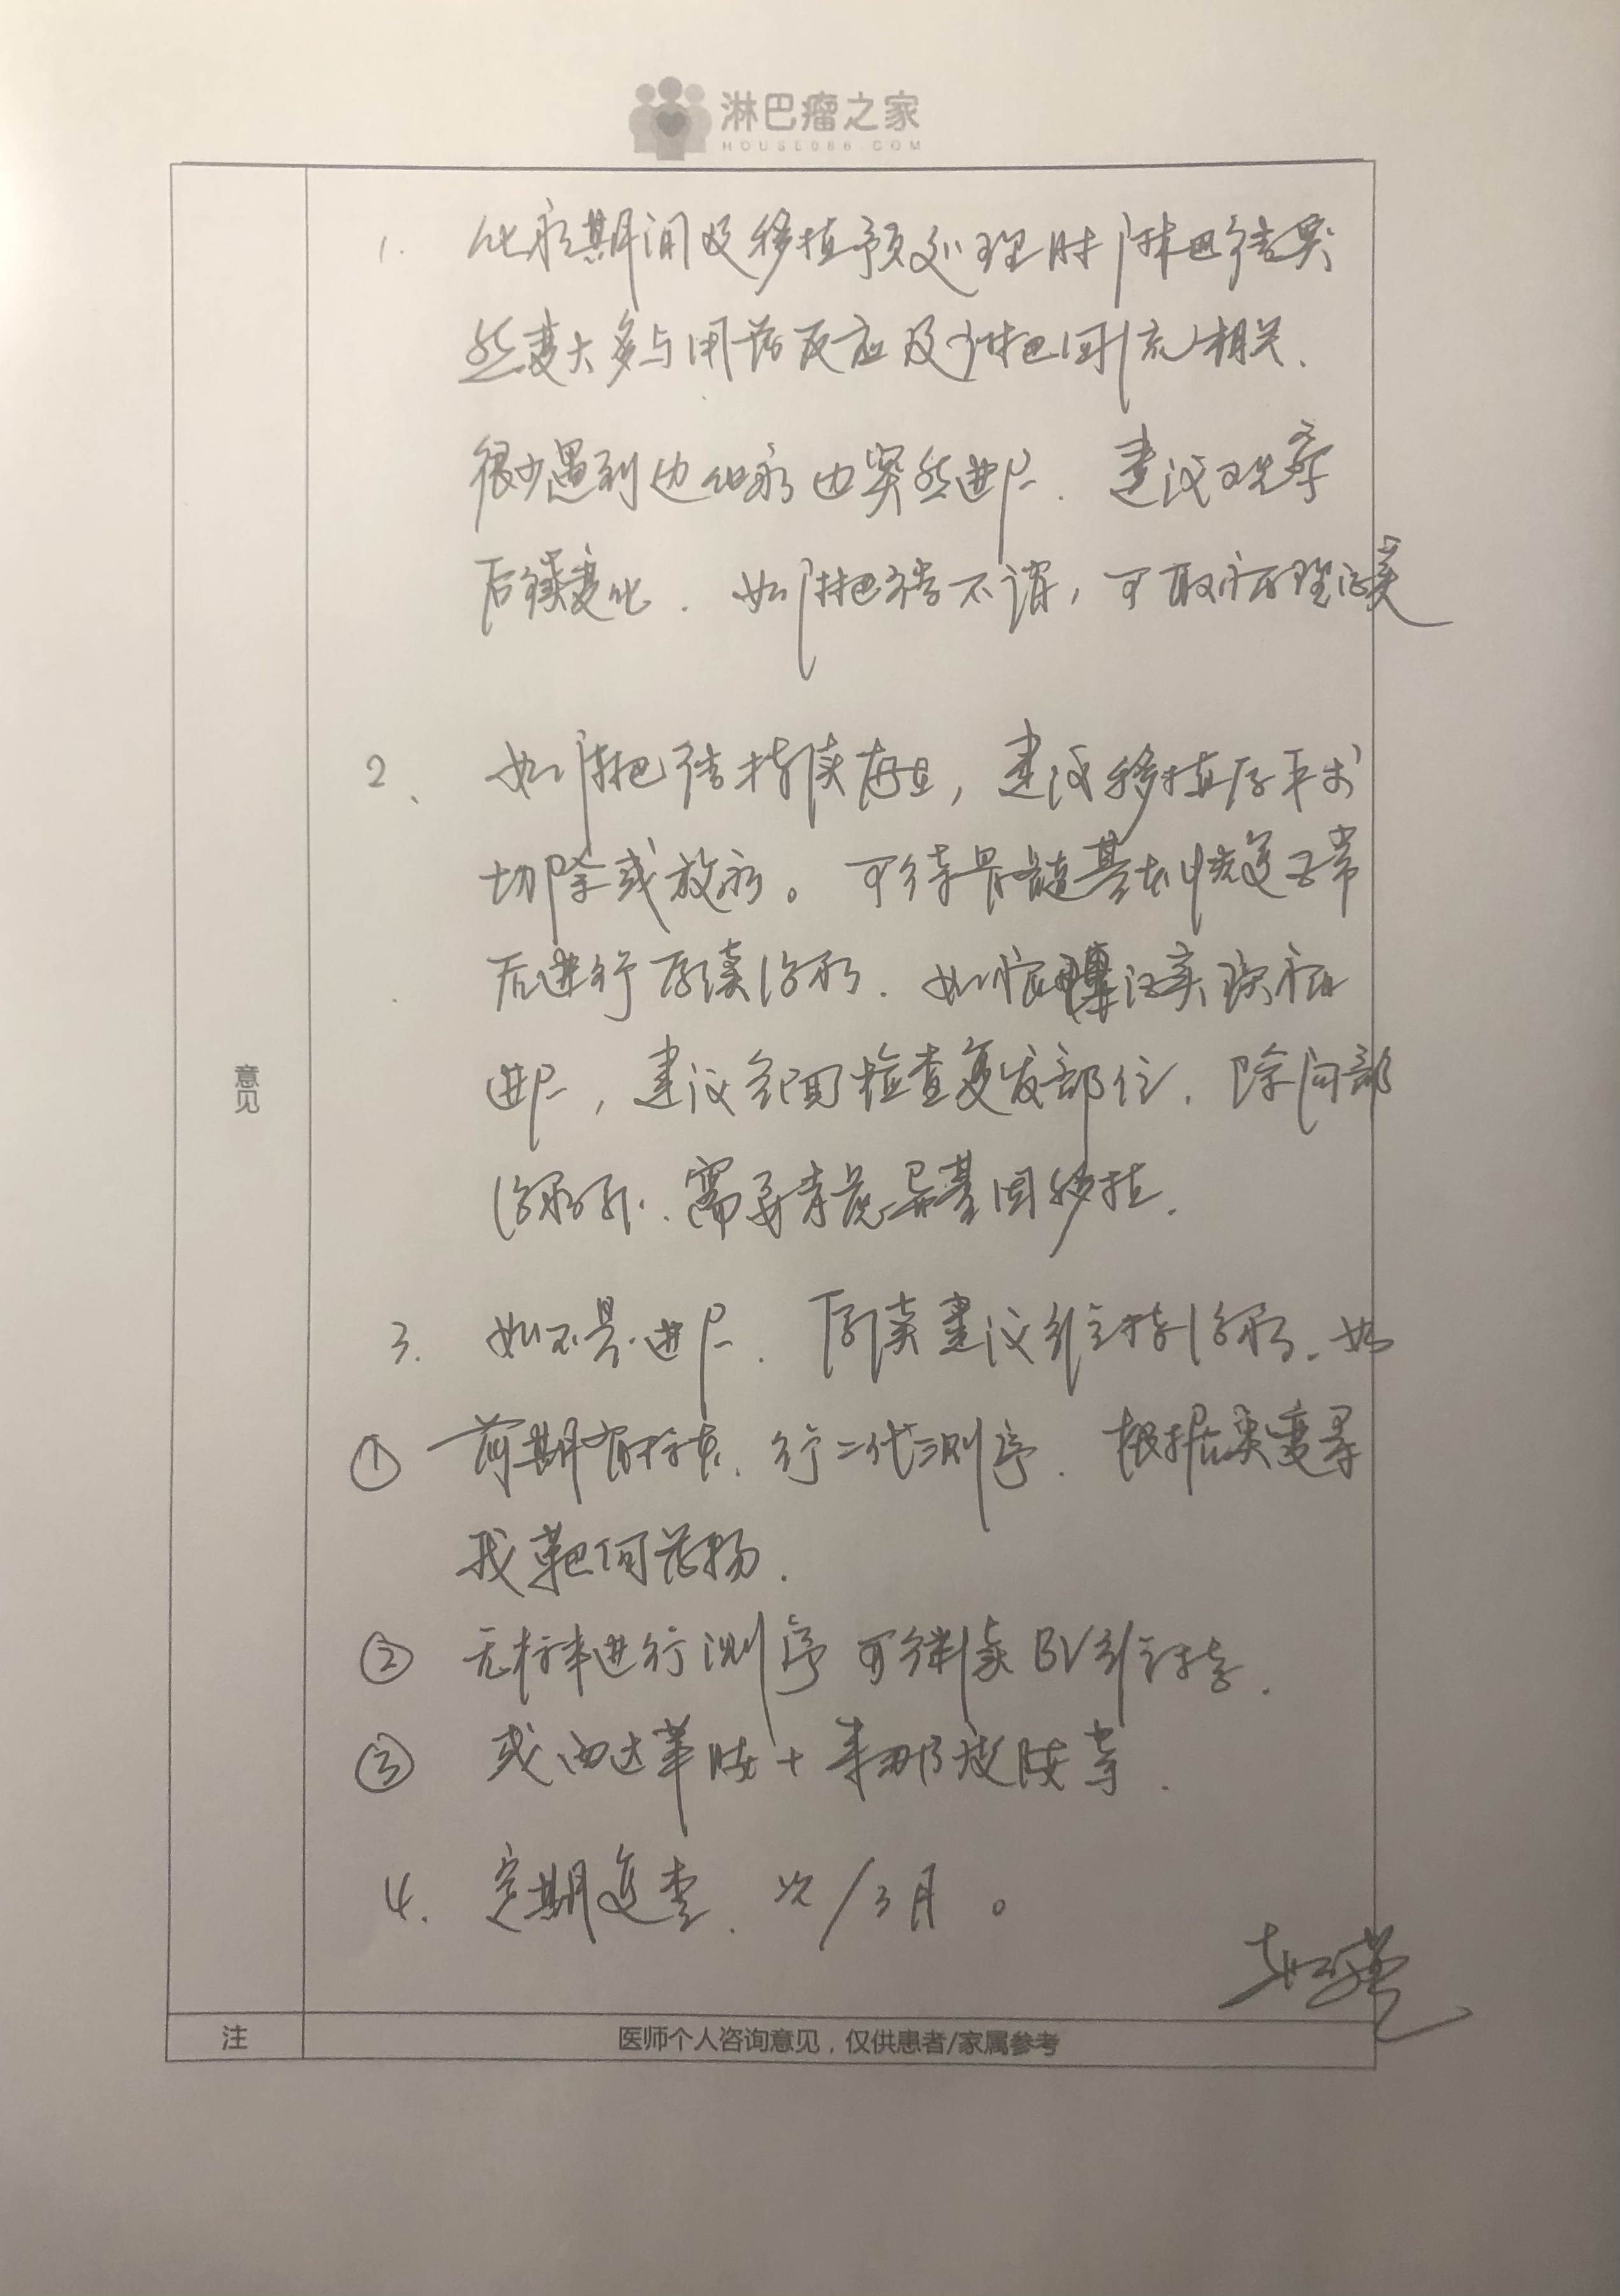 淋巴瘤之家
HOUSE086.COM
1. 化疗期间及移植预处理时淋巴结突
然变大多与用药反应及淋巴回流相关.
很少遇到边化疗边突然进展. 建议观察
后续变化. 如淋巴结不消, 可取病理证实
2、 如淋巴结持续存在, 建议移植后手术
切除或放疗。可待骨髓基本恢复正常
后进行后续治疗. 如证实疾病
进展, 建议全面检查复发部位. 除局部
治疗外. 需要考虑异基因移植.
3. 如不是进展. 后续建议维持治疗. 如
① 前期有标本. 行二代测序. 根据突变寻
找靶向药物.
② 无标本进行测序 可继续BV维持.
③ 或西达苯胺+来那度胺等.
4. 定期复查. 次/3月。
意见
注
医师个人咨询意见，仅供患者/家属参考